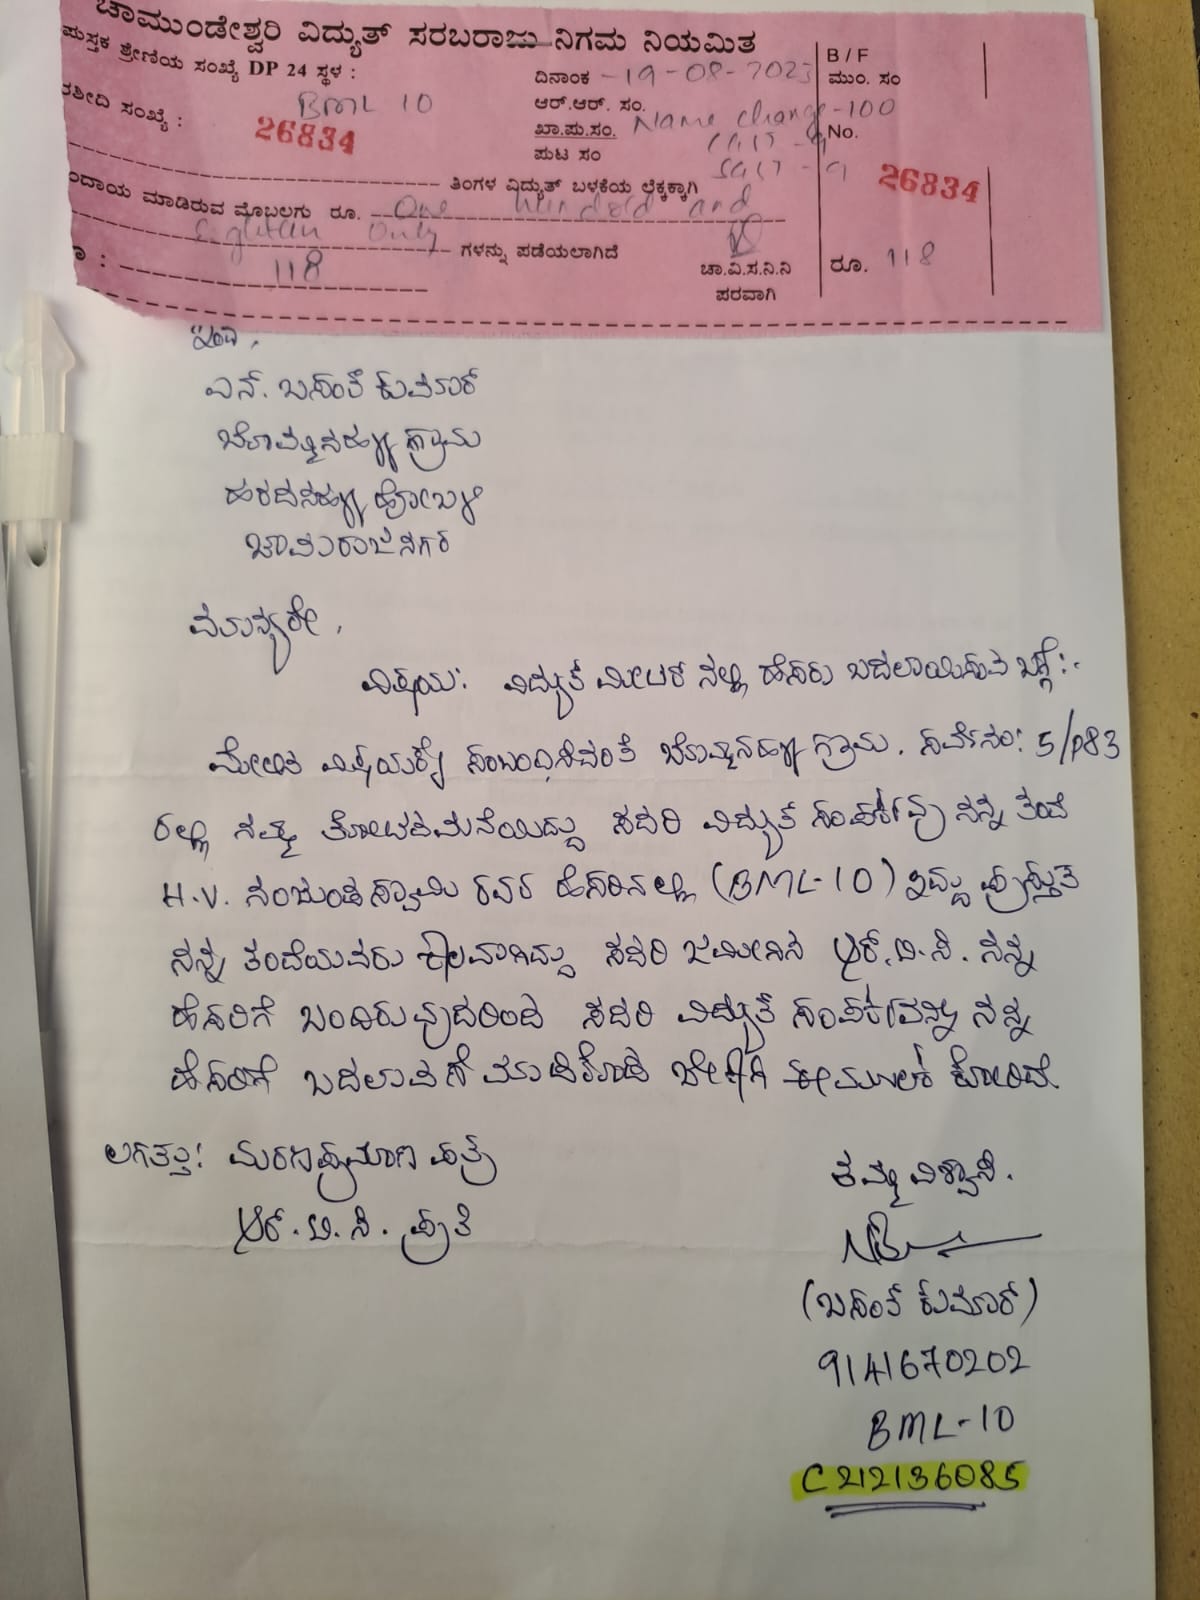 ಚಾಮುಂಡೇಶ್ವರಿ ವಿದ್ಯುತ್ ಸರಬರಾಜು ನಿಗಮ ನಿಯಮಿತ
ಪುಸ್ತಕ ಶ್ರೇಣಿಯ ಸಂಖ್ಯೆ DP 24 ಸ್ಥಳ :
BML 10
ರಶೀದಿ ಸಂಖ್ಯೆ :
26834
ದಿನಾಂಕ -19-08-2023
ಆರ್.ಆರ್. ಸಂ.
ಖಾ.ಪು.ಸಂ. Name change-100
ಪುಟ ಸಂ CGST - 9
SGST - 9
B / F
ಮುಂ. ಸಂ
No.
26834
ತಿಂಗಳ ವಿದ್ಯುತ್ ಬಳಕೆಯ ಲೆಕ್ಕಕ್ಕಾಗಿ
ಸಂದಾಯ ಮಾಡಿರುವ ಮೊಬಲಗು ರೂ. One Hundred and
Eighteen Only ಗಳನ್ನು ಪಡೆಯಲಾಗಿದೆ
118
ಚಾ.ವಿ.ಸ.ನಿ.ನಿ
ಪರವಾಗಿ
ರೂ. 118
ಇಂದ,
ಎನ್. ಬಸಂತ ಕುಮಾರ್
ಬೊಮ್ಮನಹಳ್ಳಿ ಗ್ರಾಮ
ಹರದನಹಳ್ಳಿ ಹೋಬಳಿ
ಚಾಮರಾಜನಗರ
ಮಾನ್ಯರೇ,
ವಿಷಯ: ವಿದ್ಯುತ್ ಮೀಟರ್ ನಲ್ಲಿ ಹೆಸರು ಬದಲಾಯಿಸುವ ಬಗ್ಗೆ:-
ಮೇಲಿನ ವಿಷಯಕ್ಕೆ ಸಂಬಂಧಿಸಿದಂತೆ ಬೊಮ್ಮನಹಳ್ಳಿ ಗ್ರಾಮ. ಸರ್ವೆನಂ: 5/P83
ರಲ್ಲಿ ನಮ್ಮ ತೋಟದಮನೆಯಿದ್ದು ಸದರಿ ವಿದ್ಯುತ್ ಸಂಪರ್ಕವು ನನ್ನ ತಂದೆ
H.V. ನಂಜುಂಡಸ್ವಾಮಿ ರವರ ಹೆಸರಿನಲ್ಲಿ (BML-10) ಇದ್ದು ಪ್ರಸ್ತುತ
ನನ್ನ ತಂದೆಯವರು ಕಾಲವಾಗಿದ್ದು ಸದರಿ ಜಮೀನಿನ ಆರ್.ಟಿ.ಸಿ. ನನ್ನ
ಹೆಸರಿಗೆ ಬಂದಿರುವುದರಿಂದ ಸದರಿ ವಿದ್ಯುತ್ ಸಂಪರ್ಕವನ್ನು ನನ್ನ
ಹೆಸರಿಗೆ ಬದಲಾವಣೆ ಮಾಡಿಕೊಡ ಬೇಕಾಗಿ ಈ ಮೂಲಕ ಕೋರಿದೆ.
ಲಗತ್ತು: ಮರಣಪ್ರಮಾಣ ಪತ್ರ
ಆರ್.ಟಿ.ಸಿ. ಪ್ರತಿ
ತಮ್ಮ ವಿಶ್ವಾಸಿ.
(ಬಸಂತ ಕುಮಾರ್)
9141670202
BML-10
C212136085